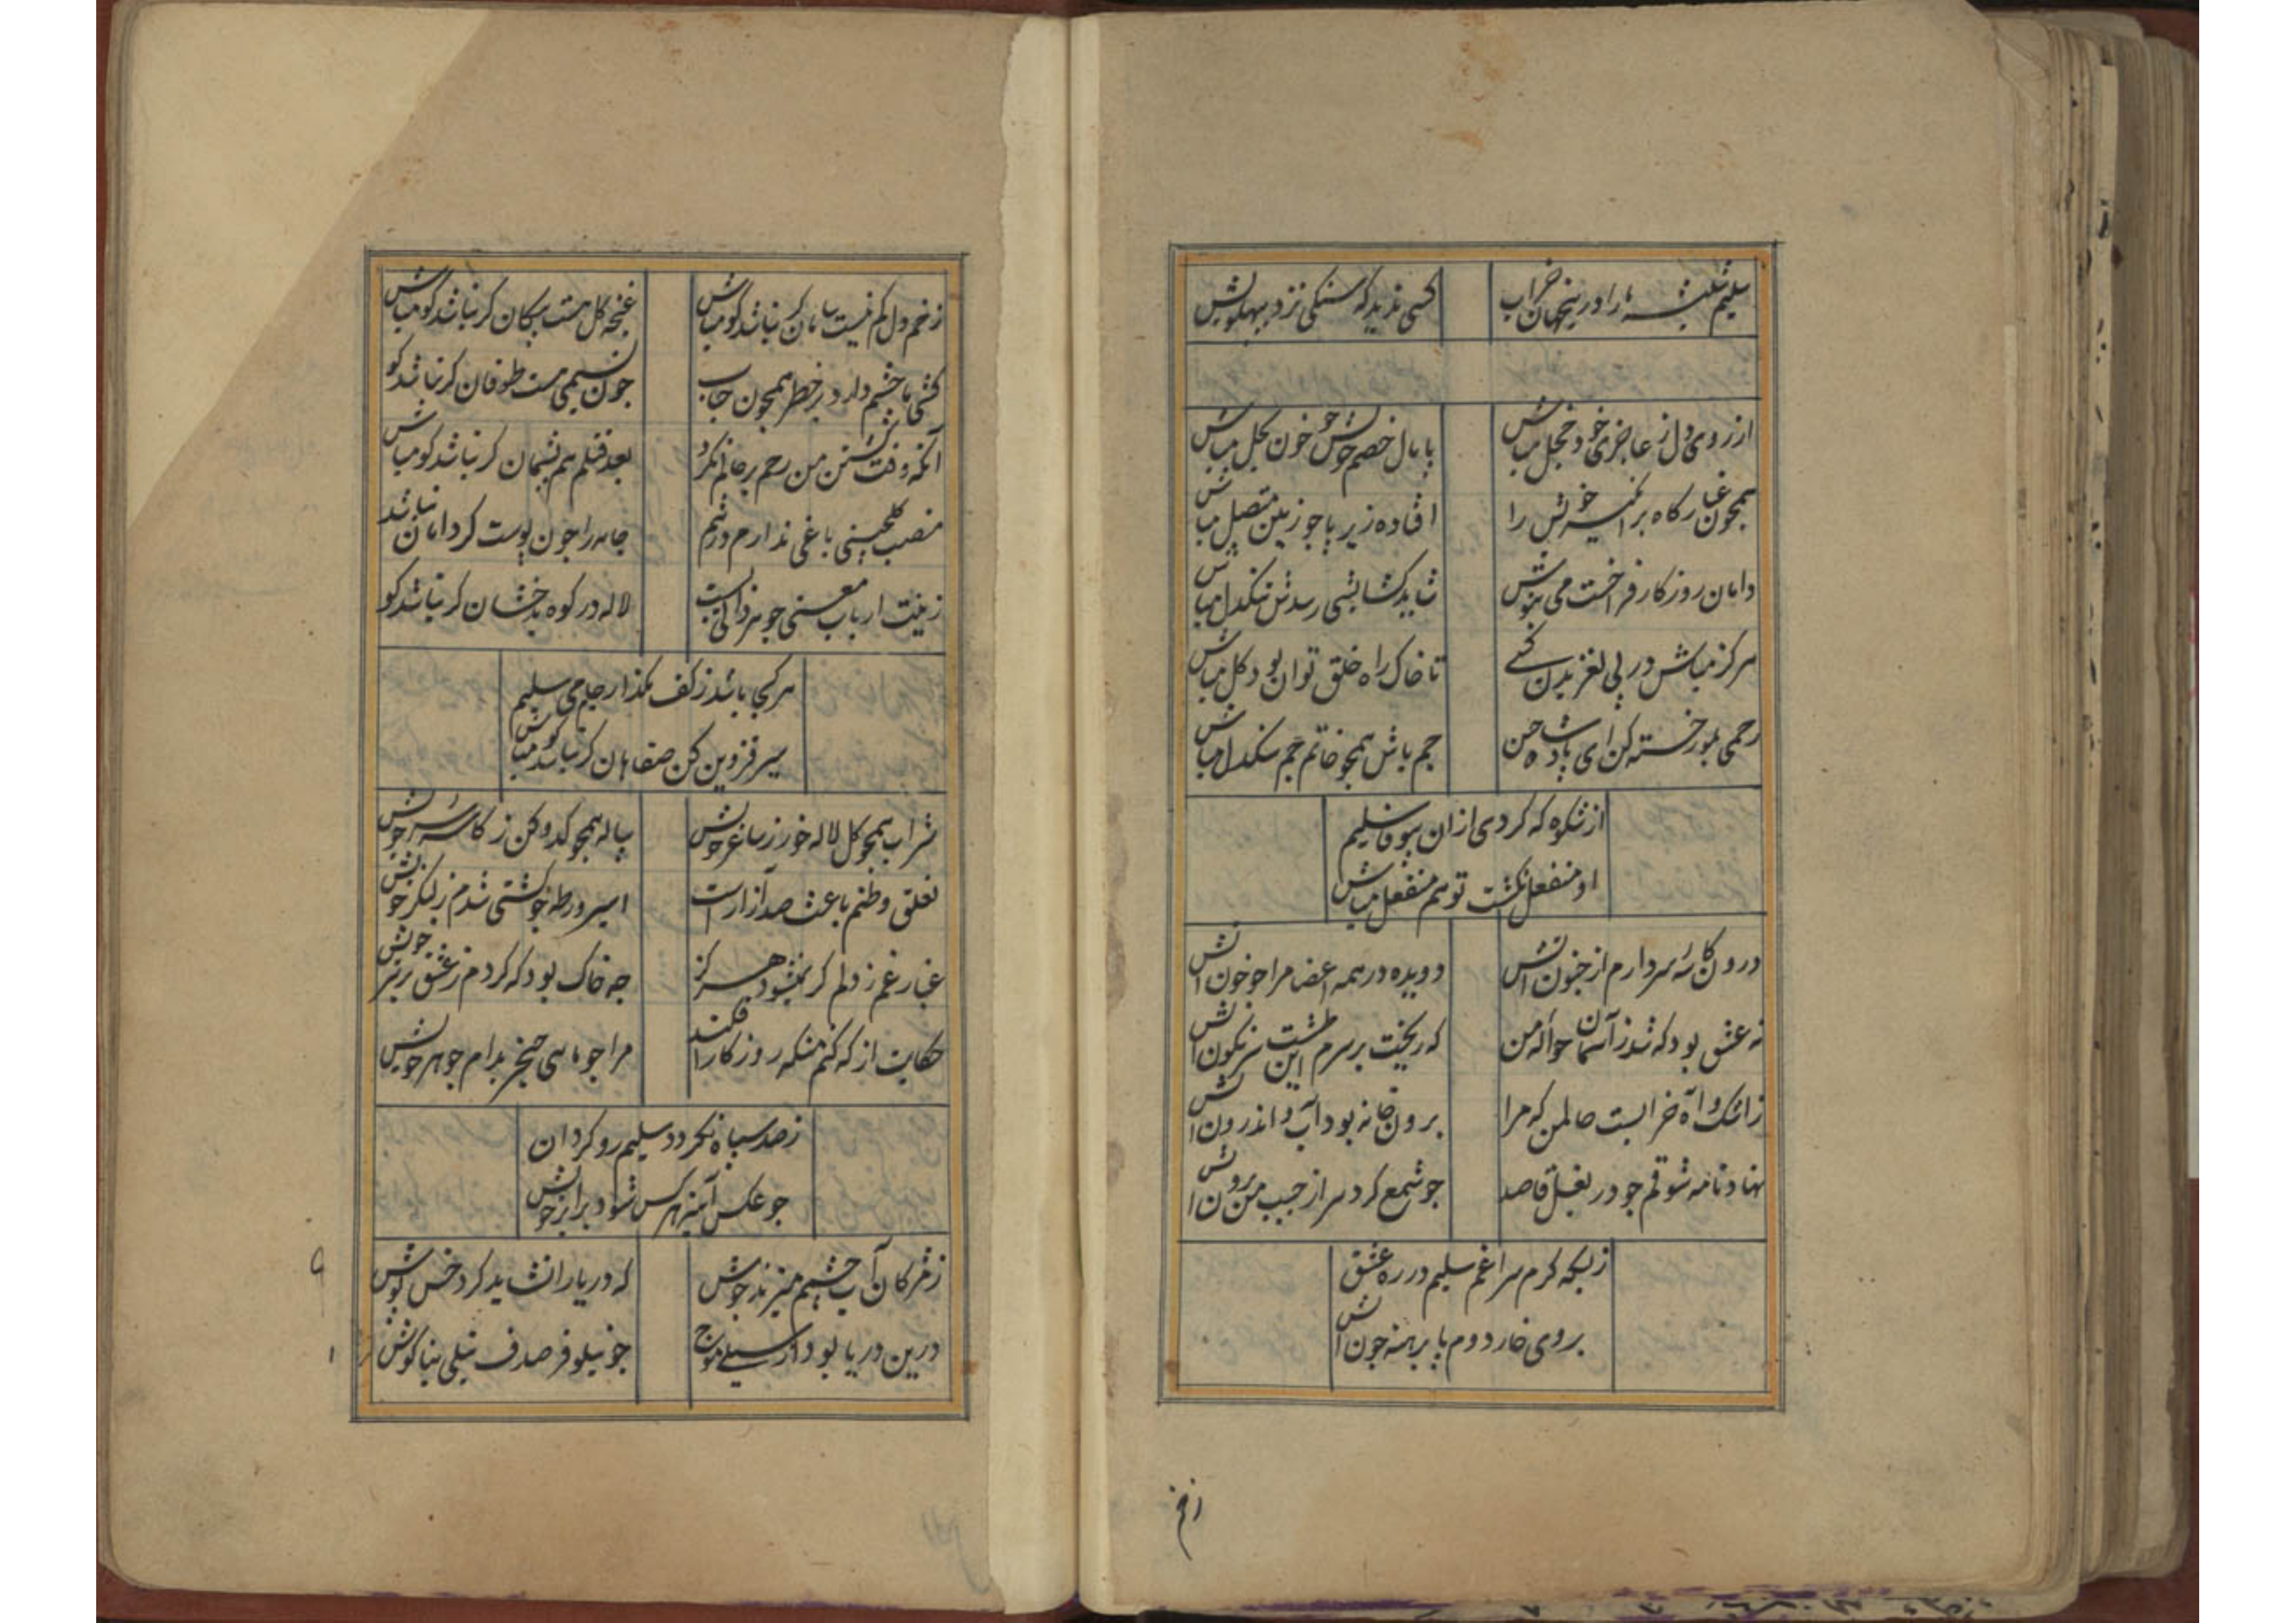 سلیم شیشه ما را درین جهان خراب
کسی ندید که سنکی نزد به پهلویش
از روی دل ز عاجزی خود خجل مباش
پامال خصم خویش چو خون بحل مباش
همچون غبار کاه برانکیز خویش را
افتاده زیر پا چو زمین متصل مباش
دامان روزکار فراخست می بنوش
شاید کشایشی رسدش تنکدل مباش
هرکز مباش در پی لغزیدن کسی
تا خاک راه خلق توان بود کل مباش
رحمی بمور خسته کن ای پادشاه حسن
جم باش همچو خاتم جم سنکدل مباش
از شکوه که کردی ازان بیوفا سلیم
او منفعل نکشت تو هم منفعل مباش
درون کاسه سر دارم از جنون آتش
دویده در همه اعضا مرا چو خون آتش
نه عشق بود که شد ز آسمان حواله من
که ریخت بر سرم این طشت سرنکون آتش
ز اشک و آه خرابست حالمن که مرا
برون خانه بود آب و اندرون آتش
نهاد نامه شوقم چو در بغل قاصد
چو شمع کرد سر از جیب من برون آتش
ز بسکه کرم سراغم سلیم در ره عشق
بروی خار دوم پا برهنه چون آتش
زخم
زخم دل کم نیست سامان کر نباشد کو مباش
غنچه کل هست پیکان کر نباشد کو مباش
کشتی ما چشم دارد در خطر همچون حباب
چون نسیمی هست طوفان کر نباشد کو
آنکه وقت کشتن من رحم بر حالم نکرد
بعد قتلم هم پشیمان کر نباشد کو مباش
منصب کلچینی باغی ندارم در شیم
جامه را چون پوست کر دامان نباشد
زینت ارباب معنی جوهر ذاتی بست
لاله در کوه بدخشان کر نباشد کو
هر کجا باشد ز کف مکذار جام می سلیم
سیر قزوین کن صفاهان کر نباشد کو مباش
شراب همچو کل لاله خور ز ساغر خویش
پیاله همچو کدو کن ز کاسه سر خویش
تعلق وطنم باعث صد آزار است
اسیر ورطه چو کشتی شدم ز لنکر خویش
غبار غم ز دلم کر نمیشود هرکز
چه خاک بود که کردم ز عشق بر سر خویش
حکایت از که کنم منکه روزکار افکند
مرا چو ماهی خنجر بدام جوهر خویش
ز صد سپاه نکردد سلیم رو کردان
چو عکس آینه هر کس شود برابر خویش
ز مژکان آب چشمم میزند جوش
که دریا را نشاید کرد خس پوش
درین دریا بود از سیلی موج
چو نیلوفر صدف نیلی بناکوش